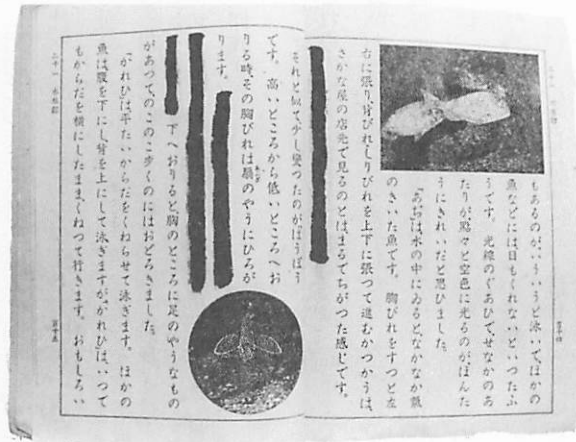 もあるのが、いういうと泳いで、ほかの
魚などには目もくれないといつたふ
うです。光線のぐあひで、せなかのあ
たりが、點々と空色に光るのがほんた
うにきれいだと思ひました。
「あぢ」は、水の中にゐると、なかなか氣
のきいた魚です。胸びれをすつと左
右に張り、背びれしりびれを上下に張つて進むかつかうは、
さかな屋の店先で見るのとは、まるでちがつた感じです。
それと似て、少し變つたのが「はうぼう」
です。高いところから低いところへお
りる時、その胸びれは、扇のやうにひろが
ります。
下へおりると、胸のところに足のやうなもの
があつて、のこのこ歩くのにはおどろきました。
「かれひ」は、平たいからだをくねらせて泳ぎます。ほかの
魚は、腹を下にし、背を上にして泳ぎますが、「かれひ」は、いつで
もからだを横にしたまま、くねつて行きます。おもしろい